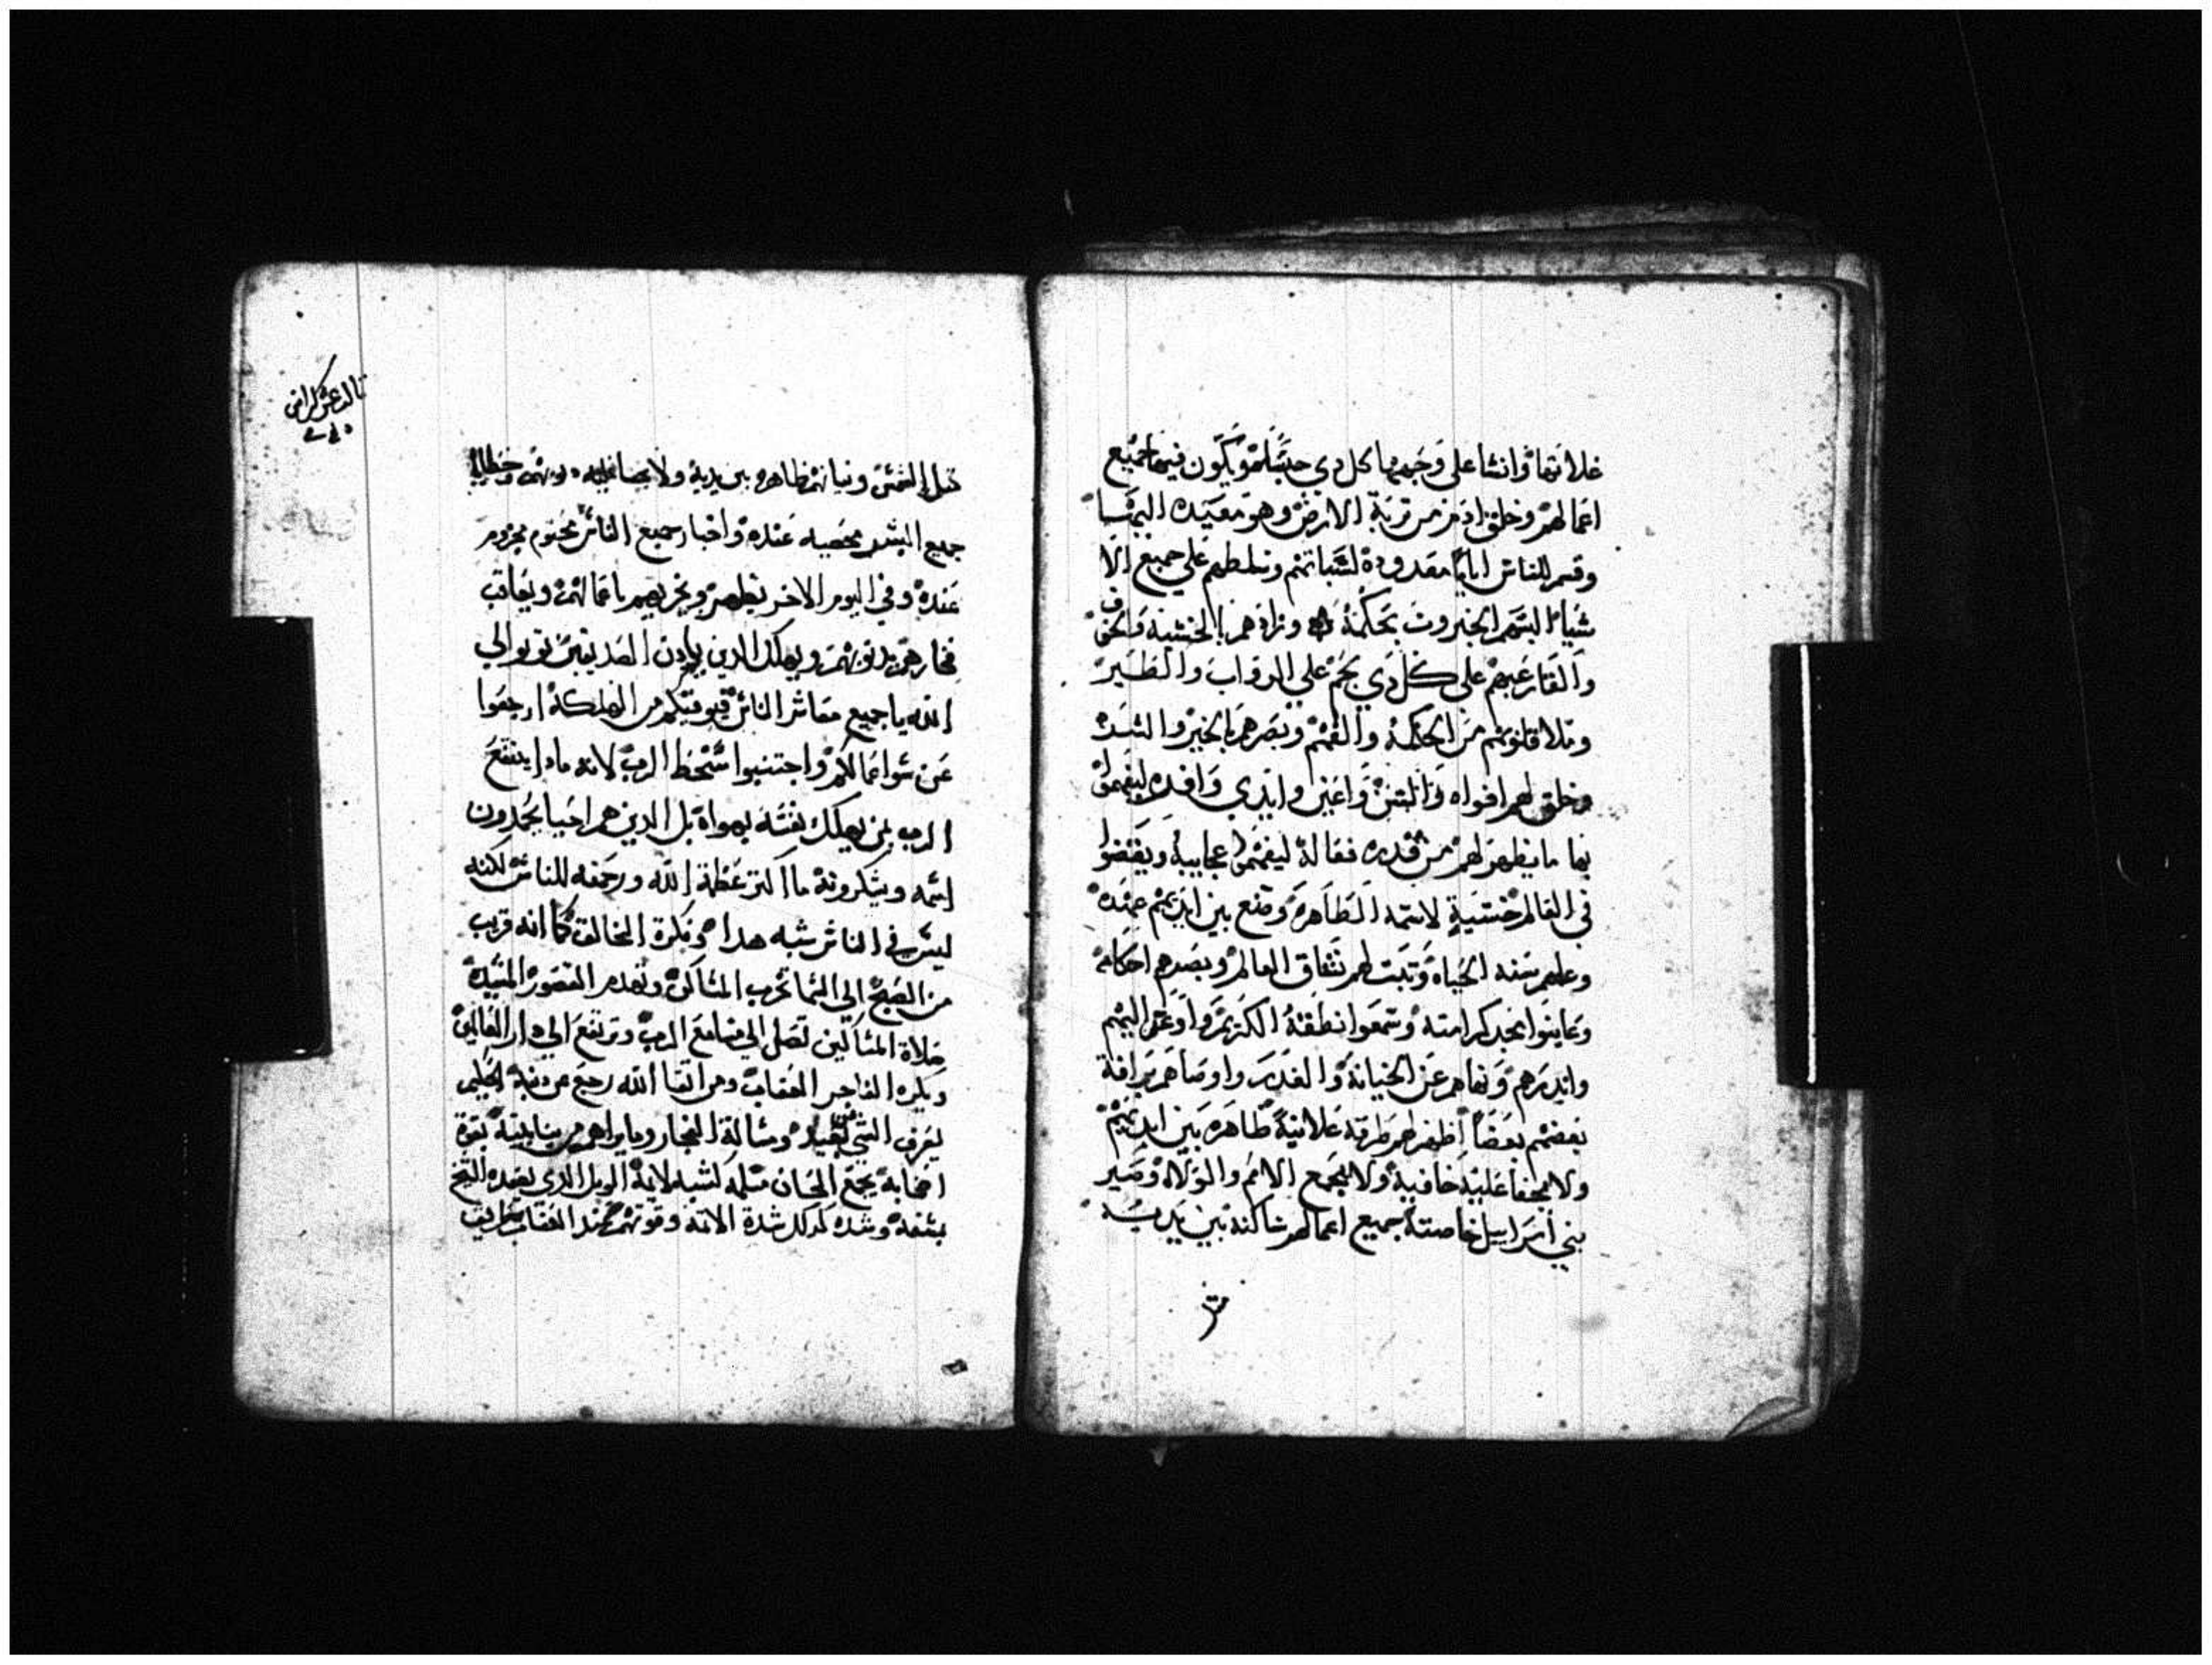 غلاتها وانشا على وجهها كل دي جسم ويكون فيها جميع
اعمالهم وخلق ادم من تربة الارض وهو معيده اليها
وقسم للناس اياما معدودة لشباتهم وسلطهم علي جميع الا
شيا البسهم الجبروت بحكمة وزادهم الخشية والخوف
والقا رعبهم على كل دي لحم علي الدواب والطير
وملا قلوبهم من الحكمة والفهم وبصرهم بالخير والشر
وخلق لهم افواه والسن واعين وايدي وافده ليفهموا
بها ما يظهر لهم من قدره فعاله ليفهموا عجايبه ويقتضوا
في العالم خشية لاسمه الطاهرة وضع بين ايديهم عهده
وعلمهم سنه الحياة وتبت لهم تتاق العالم وبصرهم احكامه
وعاينوا مجد كرامته وسمعوا نطقه الكريم واوعز اليهم
واندرهم ونهاهم عن الخيانة والغدر واوصاهم برافة
بعضهم بعضا اظهر لهم طرقه علانية ظاهره بين ايديهم
ولا يخفا عليه خافية ولا الجمع الامم والولاة وصير
بني اسراييل خاصته جميع اعمالهم ساكنة بين يديه
تالت عشر كراس
متل الشمس ونياتهم ظاهره بين يديه ولا
جميع البشر محصيه عنده واخبار جميع الناس مختوم مخزوم
عنده وفي اليوم الاخر يظهر ويجزيهم باعمالهم ويعاقب
فجارهم بدنوبهم ويهلك الدين الصديقين توبوا الي
الله يا جميع معاشر الناس قيوقيكم من الهلكة ارجعوا
عن سوا عمالكم واجتنبوا سخط الرب لانه مادا ينتفع
الرب بمن يهلك نفسه بهواة بل الدين هم احيا يمجدون
اسمه ويشكرونه ما اكتر عظمة الله ورحمته للناس لكنه
ليس في الناس شبه هدا وفكرة الخالق كما انه قريب
من الصبح الي السما تخرب المساكن وتهدم القصور المشيدة
صلاة المساكين تصل الي مسامع الرب وترتفع الي دار العالمين
ويكره الفاجر العقاب ومن اتقا الله رجع عن دنبه الحليم
يعرف الشي البعيد ومسالة الفجار وما يراهم من بنا بيته بقوة
اصحابه يجمع الحجارة متله لشبه لانه الويل الدي يعقده التبخ
بشفة وشده كدلك شدة الاتمه وقوتهم عند العقاب طريق